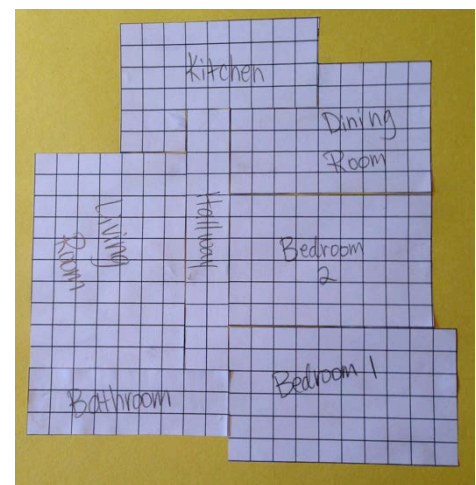 Kitchen
Dining
Room
Living
Room
Hallway
Bedroom
2
Bedroom 1
Bathroom